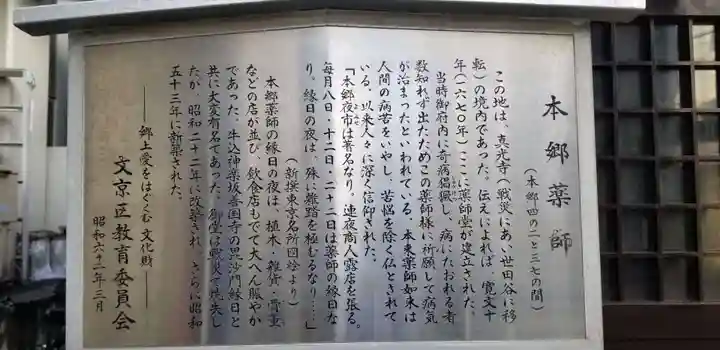 本郷薬師
(本郷四の二と三七の間)
この地は、真光寺(戦災にあい世田谷に移
転)の境内であった。伝えによれば、寛文十
年(一六七〇年)ここに薬師堂が建立された。
当時御府内に奇病倡獗し、病にたおれる者
数知れず出たためこの薬師様に祈願して病気
が治まったといわれている。本来薬師如来は
人間の病苦をいやし、苦悩を除く仏とされて
いる。以来人々に深く信仰された。
「本郷夜市は著名なり。連夜商人露店を張る。
毎月八日・十二日・二十二日は薬師の縁日な
り。縁日の夜は、殊に雑踏を極むるなり…」
(新撰東京名所図絵より)
本郷薬師の縁日の夜は、植木・雑貨・骨董
などの店が並び、飲食店もでて大へん賑やか
であった。牛込神楽坂善国寺の毘沙門縁日と
共に大変有名であった。御堂は戦災で焼失し
たが、昭和二十二年に改築され、さらに昭和
五十三年に新築された。
――郷土愛をはぐくむ文化財――
文京区教育委員会
昭和六十二年三月